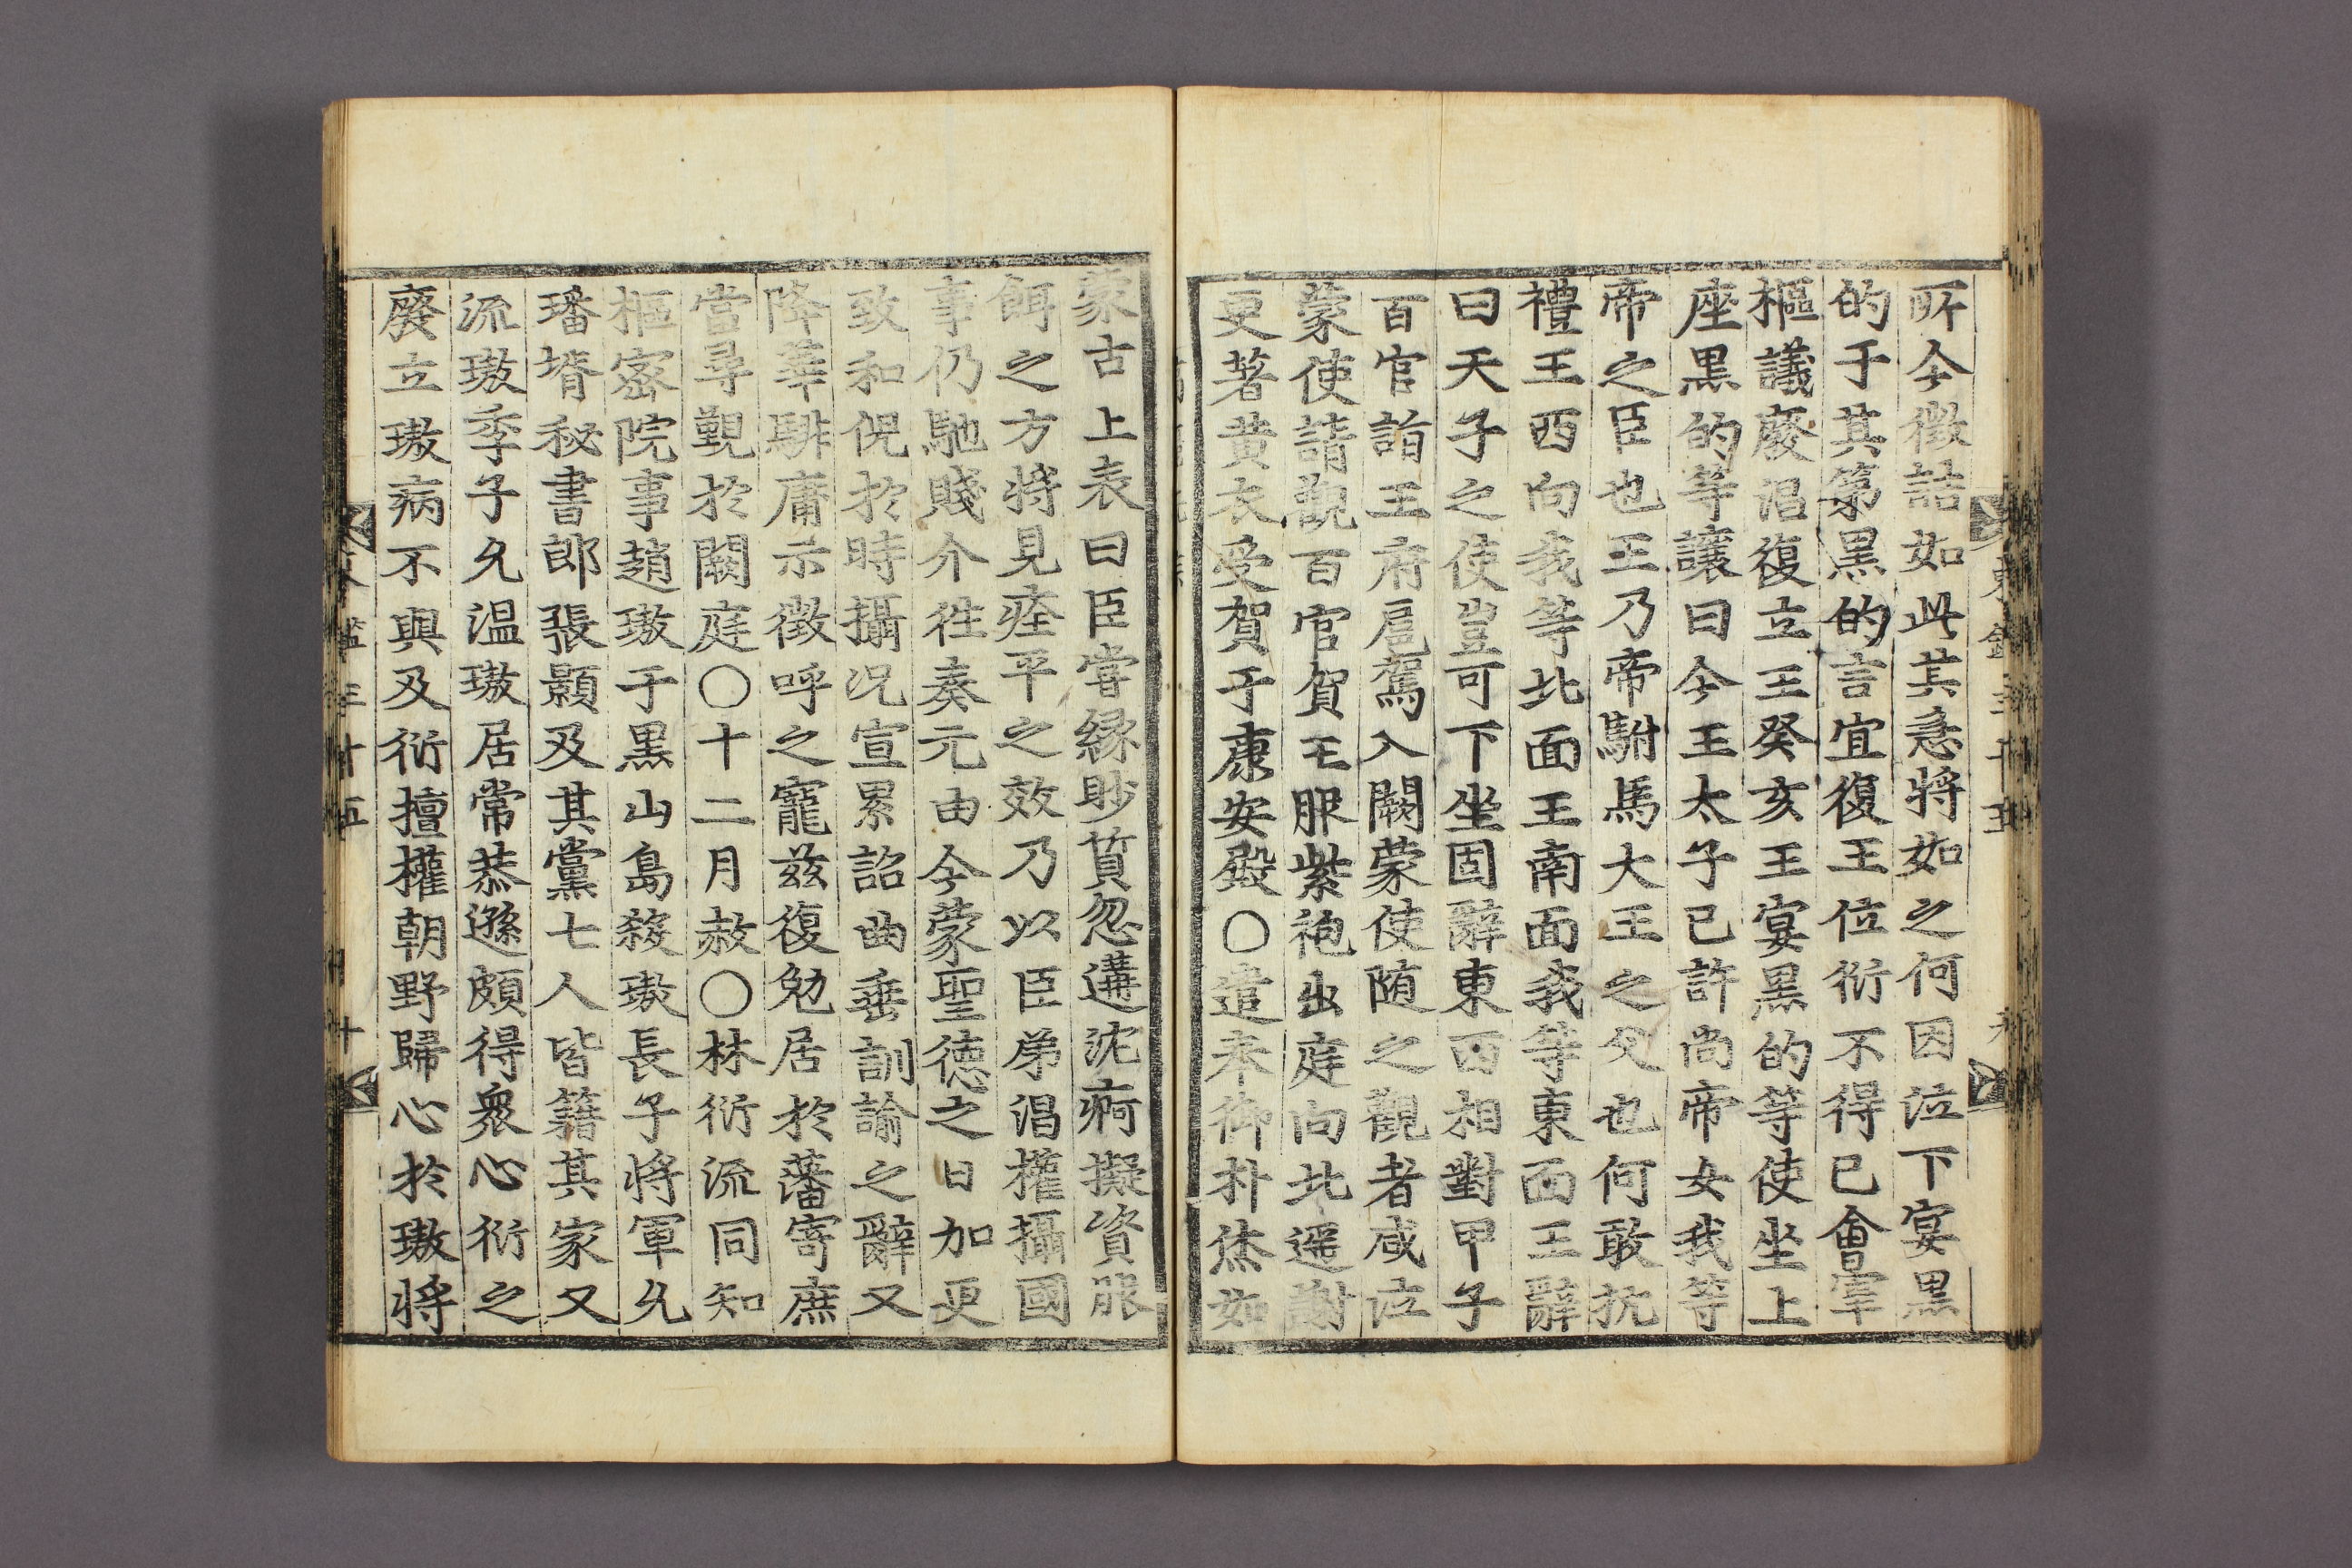 所今徵詰如此其急將如之何因泣下宴黒
的于其第黒的言宜復王位衍不得已會宰
樞議廢淐復立王癸亥王宴黒的等使坐上
座黒的等讓曰今王太子已許尚帝女我等
帝之臣也王乃帝駙馬大王之父也何敢抗
禮王西向我等北面王南面我等東面王辭
曰天子之使豈可下坐固辭東西相對甲子
百官詣王府扈駕入闕蒙使隨之觀者咸泣
蒙使請觀百官賀王服紫袍出庭向北遥謝
更著黃衣受賀于康安殿○遣奉御朴烋如
蒙古上表曰臣嘗緣眇質忽遘沈痾擬資服
餌之方將見痊平之效乃以臣弟淐權攝國
事仍馳賤介徃奏元由今蒙聖德之日加更
致和倪於時攝况宣累詔曲垂訓諭之辭又
降華騑庸示徵呼之寵兹復勉居於藩寄庶
當尋覲於闕庭○十二月赦○林衍流同知
樞密院事趙璈于黒山島殺璈長子將軍允
璠壻秘書郎張顥及其黨七人皆籍其家又
流璈季子允温璈居常恭遜頗得衆心衍之
廢立璈病不與及衍擅權朝野歸心於璈將